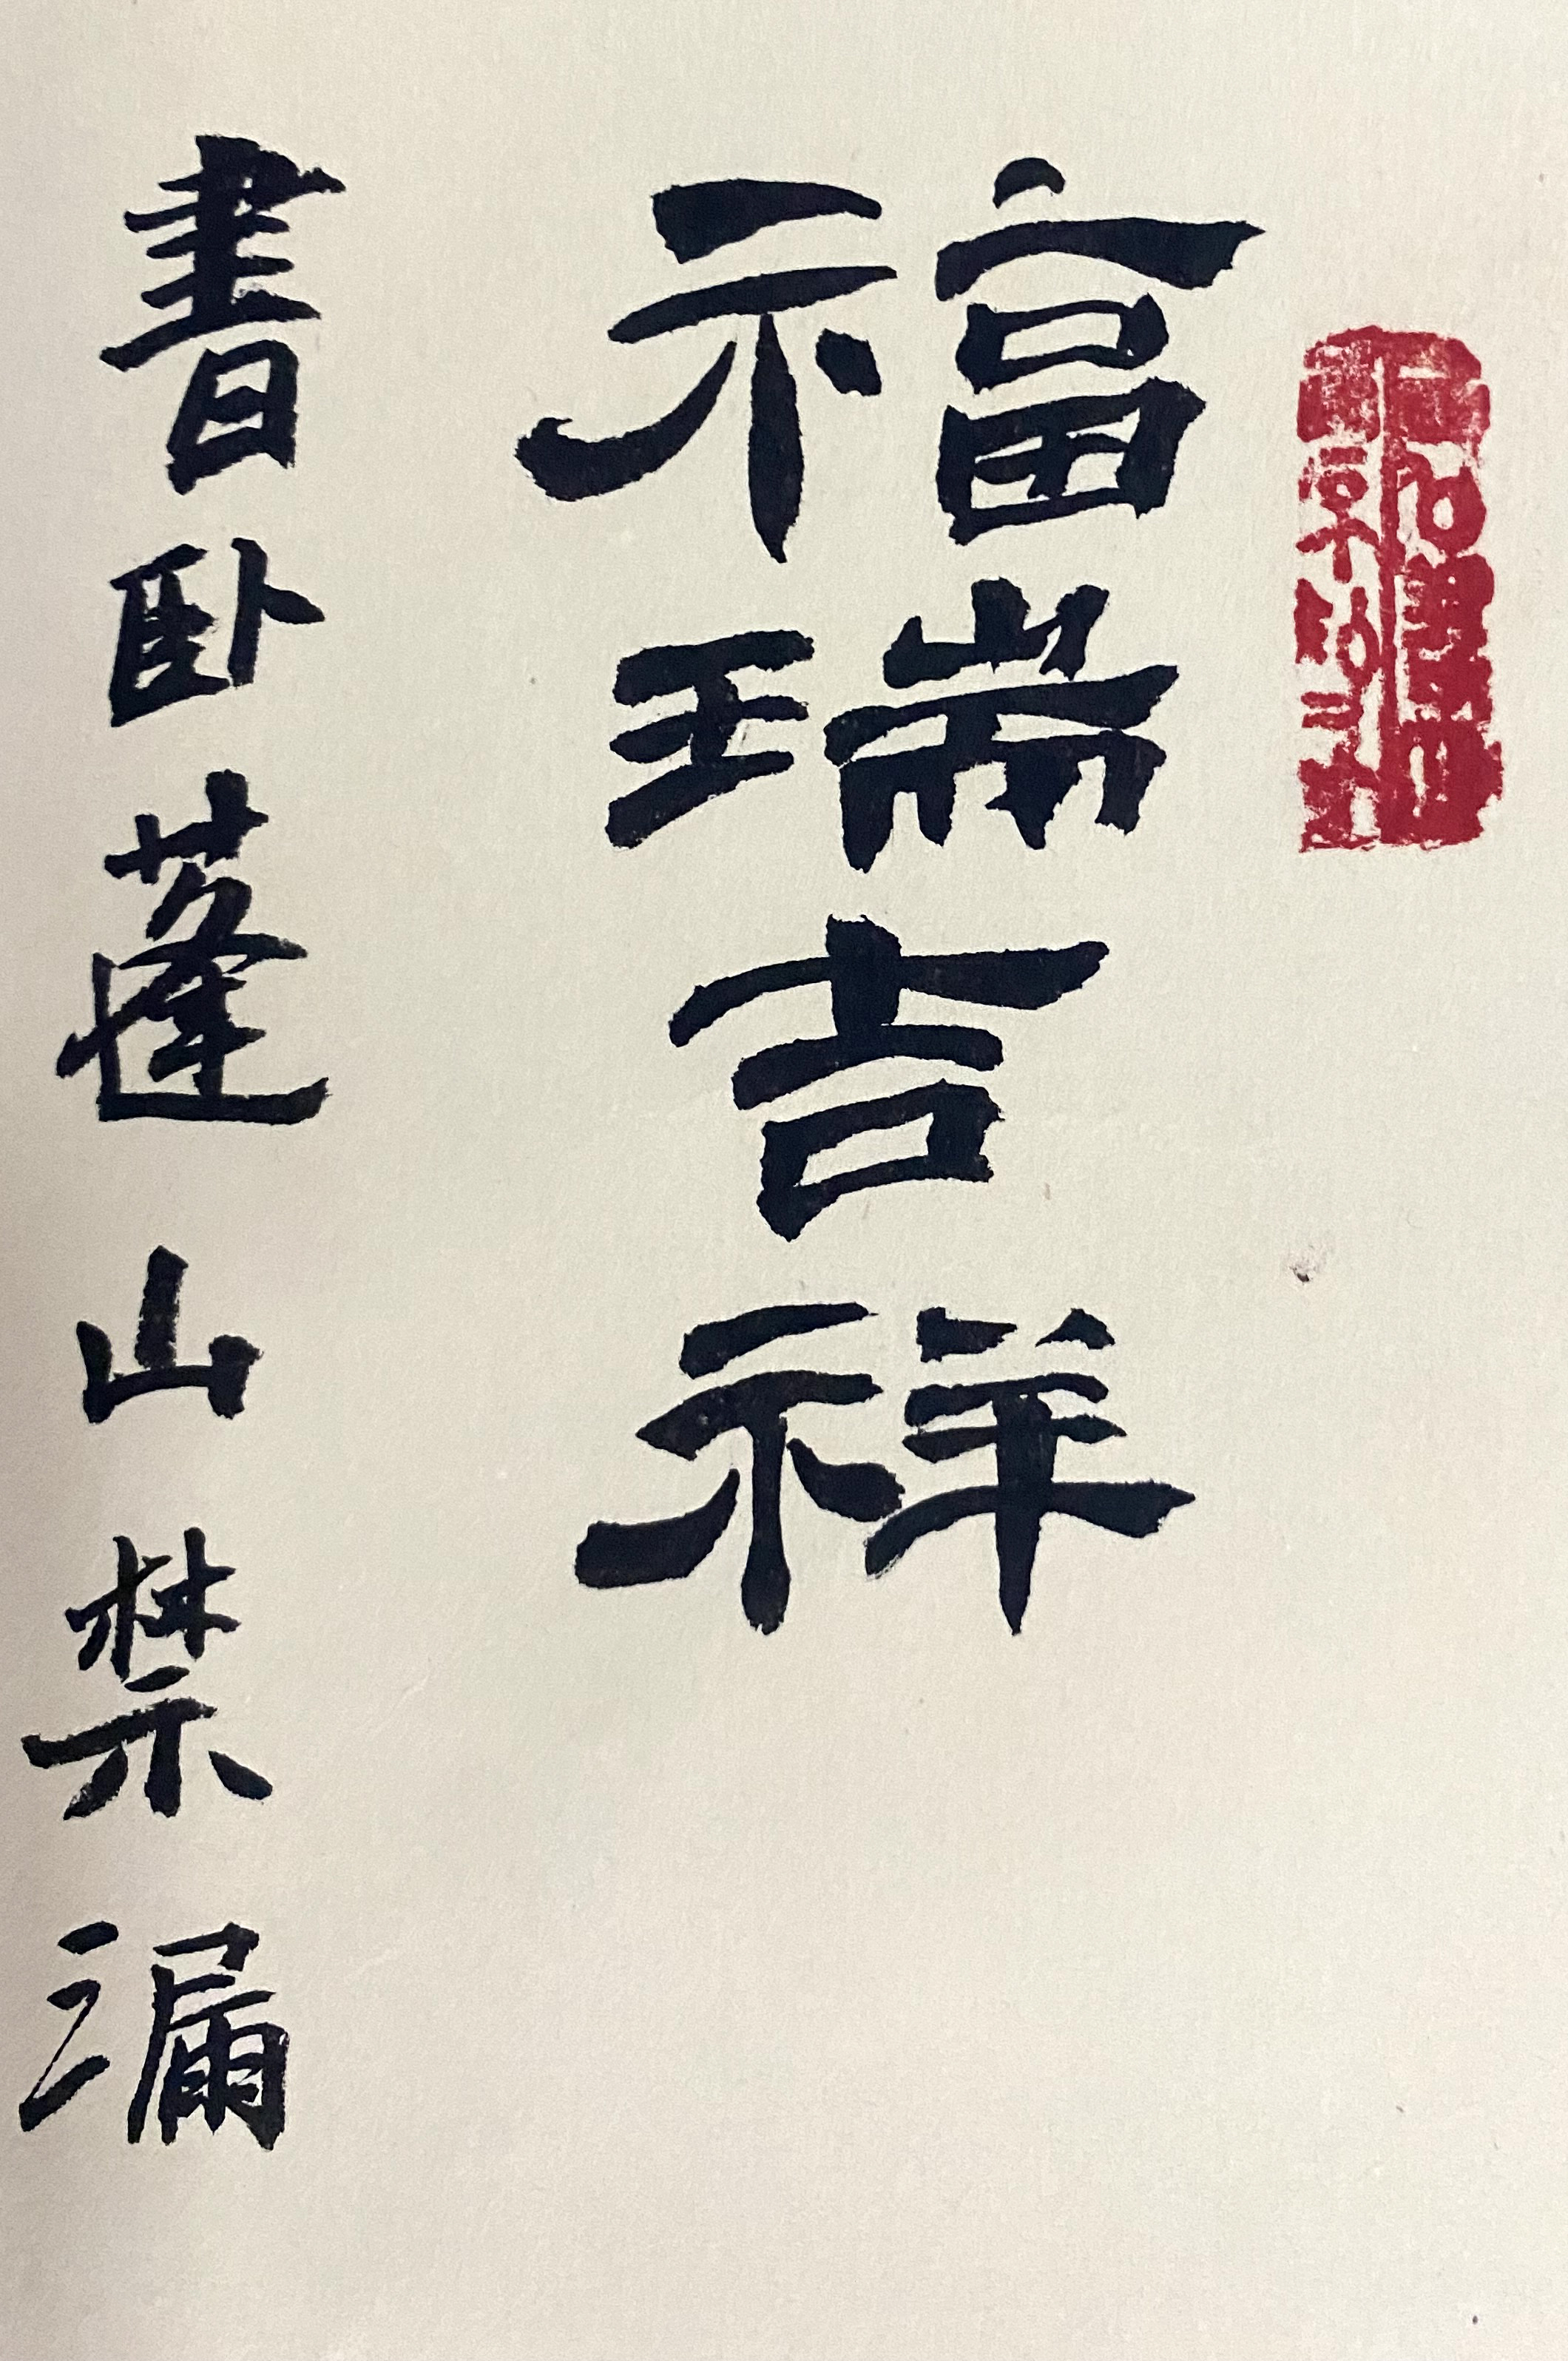 福瑞吉祥
書卧蓬山禁漏